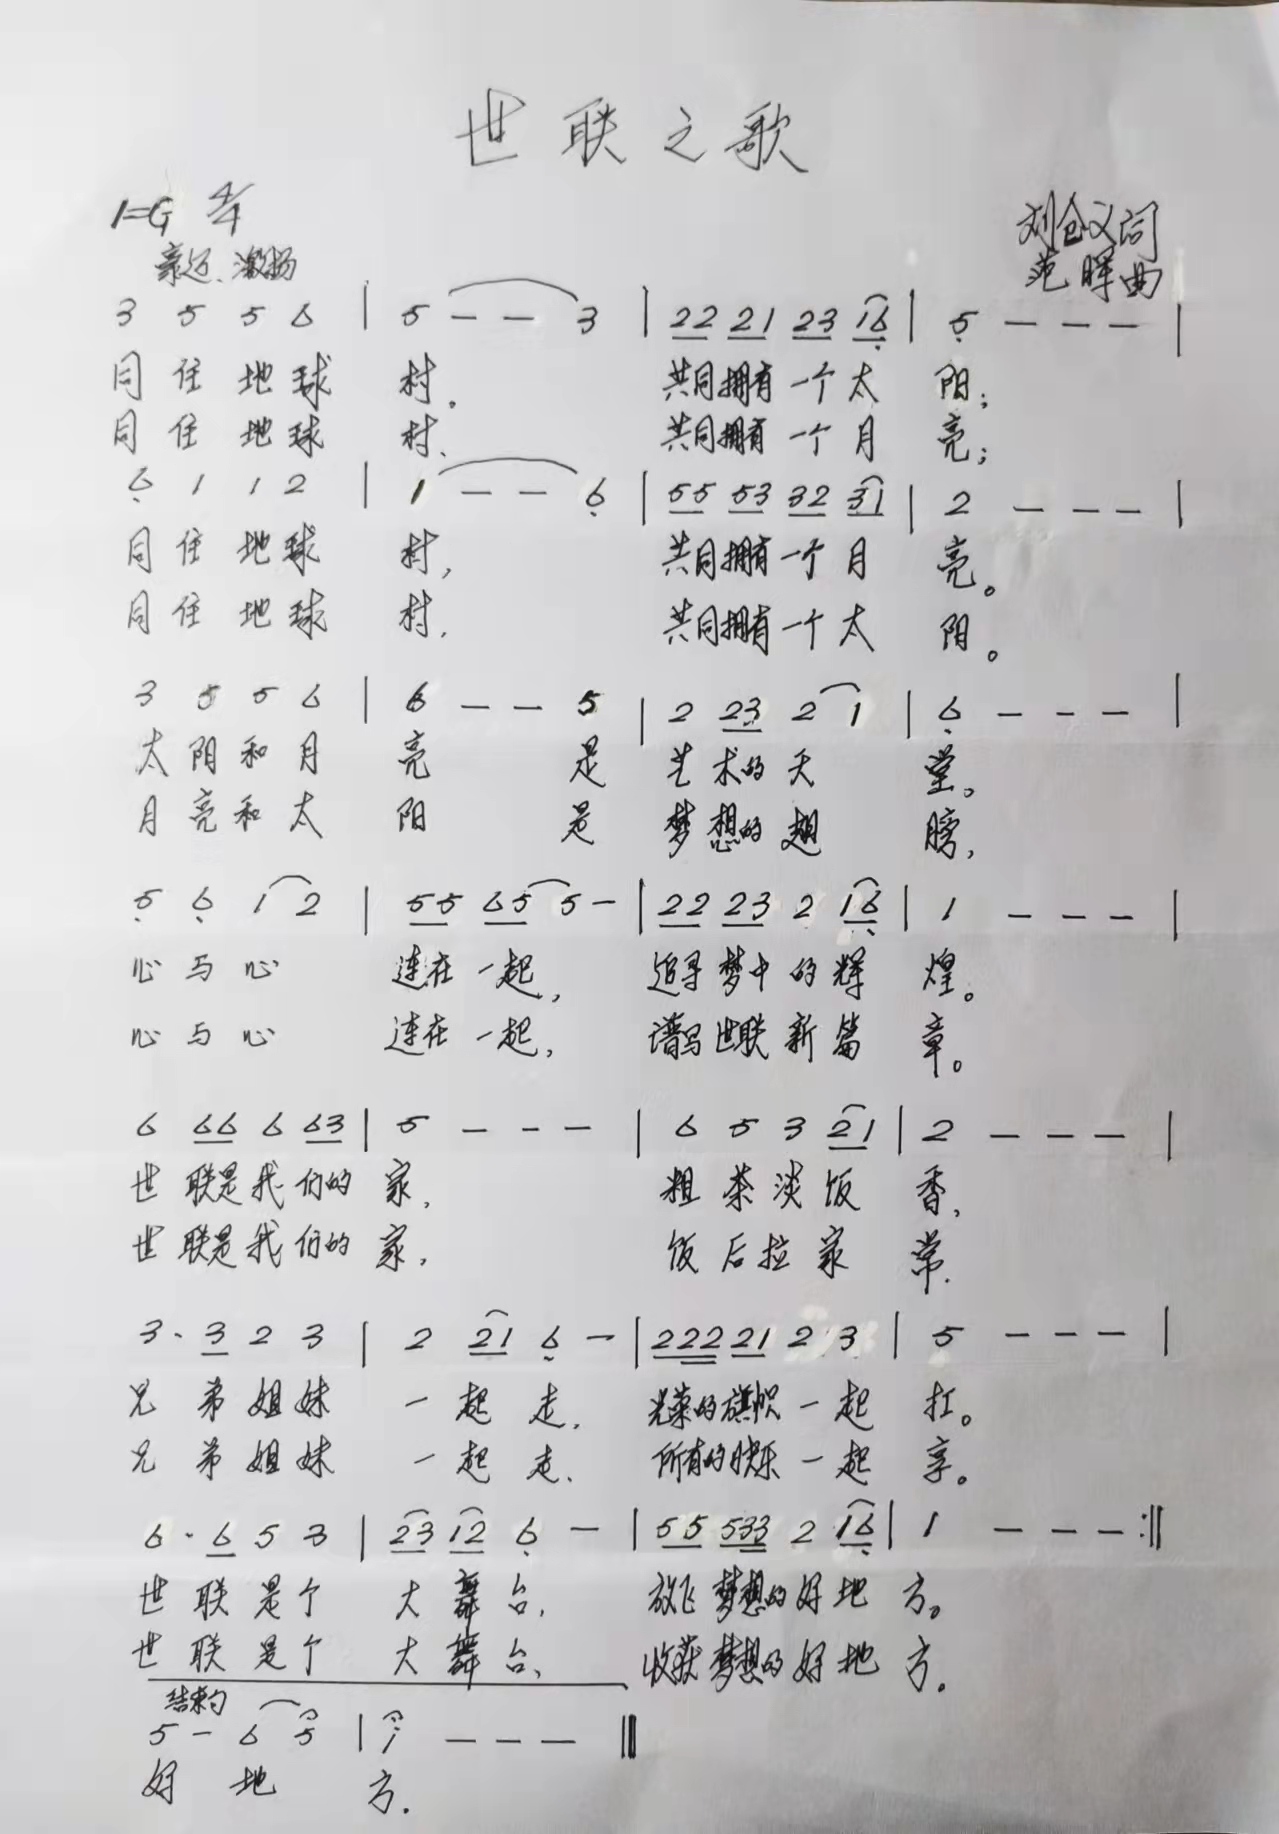 世联之歌
1=G 4/4
刘仓义词
豪迈、激扬
范晖曲
3 5 5 6 | 5 — — 3 | 22 21 23 16 | 5 — — — |
同住地球 村。 共同拥有一个太 阳；
同住地球 村、 共同拥有一个月 亮；
6 1 1 2 | 1 — — 6 | 55 53 32 31 | 2 — — — |
同住地球 村， 共同拥有一个月 亮。
同住地球 村， 共同拥有一个太 阳。
3 5 5 6 | 6 — — 5 | 2 23 2 1 | 6 — — — |
太阳和月 亮 是 艺术的天 堂。
月亮和太 阳 是 梦想的翅 膀，
5 6 1 2 | 55 65 5 — | 22 23 2 16 | 1 — — — |
心与心 连在一起， 追寻梦中的辉 煌。
心与心 连在一起， 谱写世联新篇 章。
6 66 6 63 | 5 — — — | 6 5 3 21 | 2 — — — |
世联是我们的 家， 粗茶淡饭 香，
世联是我们的 家， 饭后拉家 常.
3· 3 2 3 | 2 21 6 — | 222 21 2 3 | 5 — — — |
兄弟姐妹 一起走， 光荣的旗帜一起 扛。
兄弟姐妹 一起走、 所有的快乐一起 享。
6· 6 5 3 | 23 12 6 — | 55 533 2 16 | 1 — — — :‖
世联是个 大舞台， 放飞梦想的好地 方。
世联是个 大舞台、 收获梦想的好地 方。
结束句
5 — 6 5 | i — — — ‖
好地 方.